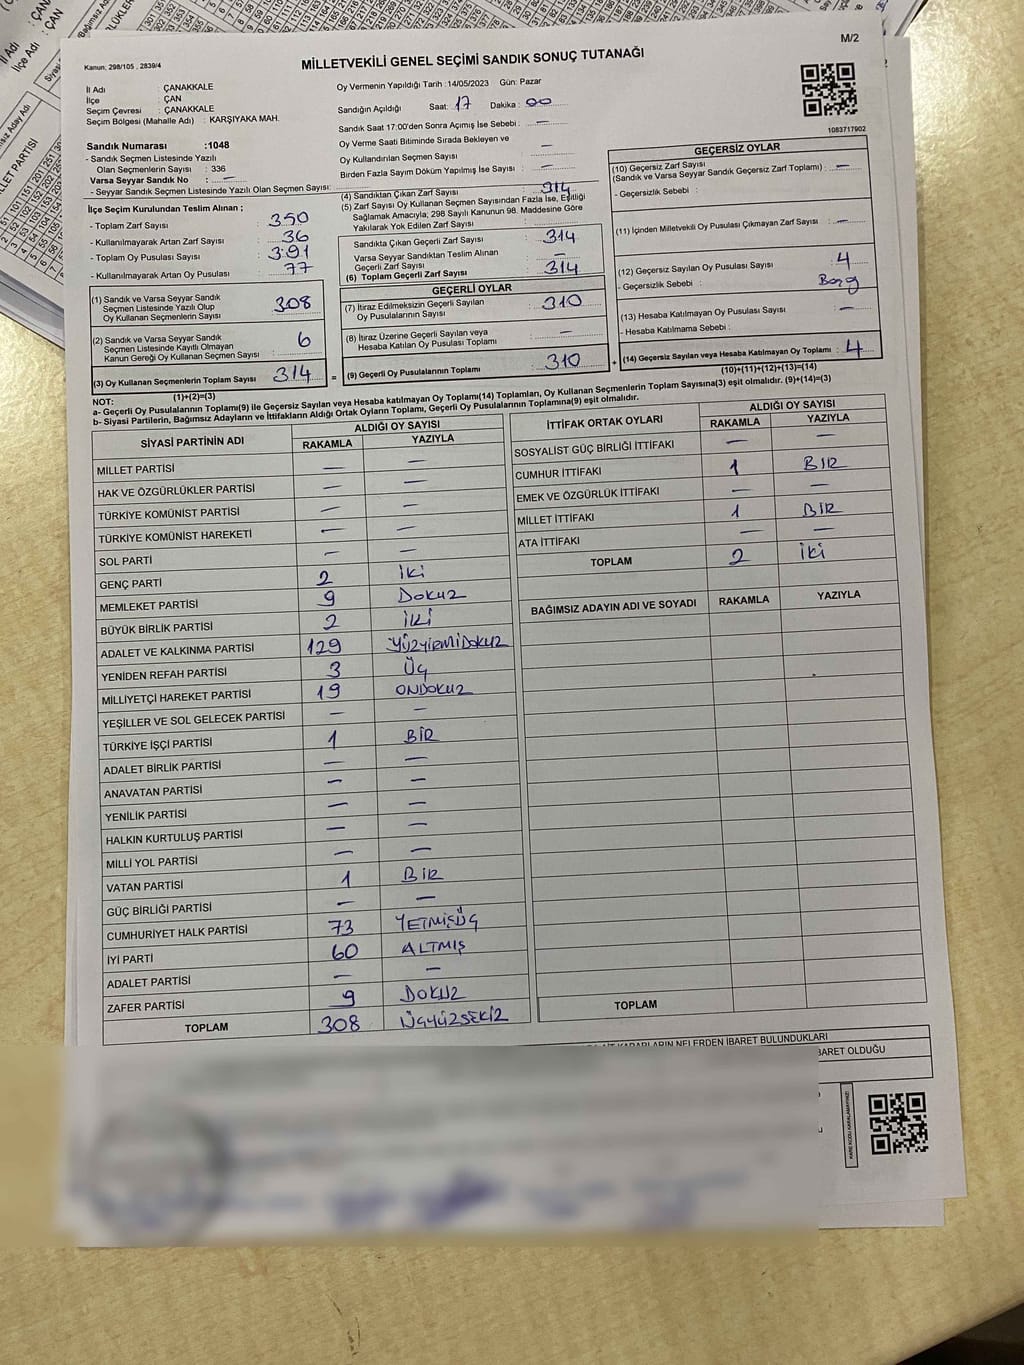 M/2
Kanun: 298/105 , 2839/4
MİLLETVEKİLİ GENEL SEÇİMİ SANDIK SONUÇ TUTANAĞI
İl Adı : ÇANAKKALE
İlçe : ÇAN
Seçim Çevresi : ÇANAKKALE
Seçim Bölgesi (Mahalle Adı) : KARŞIYAKA MAH.
Oy Vermenin Yapıldığı Tarih : 14/05/2023 Gün: Pazar
Sandığın Açıldığı Saat: 17 Dakika : 00
Sandık Saat 17:00'den Sonra Açımış İse Sebebi : —
Oy Verme Saati Bitiminde Sırada Bekleyen ve
Oy Kullandırılan Seçmen Sayısı —
Birden Fazla Sayım Döküm Yapılmış İse Sayısı : —
1083717902
Sandık Numarası :1048
- Sandık Seçmen Listesinde Yazılı
Olan Seçmenlerin Sayısı : 336
Varsa Seyyar Sandık No : —
- Seyyar Sandık Seçmen Listesinde Yazılı Olan Seçmen Sayısı:
İlçe Seçim Kurulundan Teslim Alınan ;
- Toplam Zarf Sayısı : 350
- Kullanılmayarak Artan Zarf Sayısı : 36
- Toplam Oy Pusulası Sayısı : 391
- Kullanılmayarak Artan Oy Pusulası : 77
(1) Sandık ve Varsa Seyyar Sandık
Seçmen Listesinde Yazılı Olup
Oy Kullanan Seçmenlerin Sayısı 308
(2) Sandık ve Varsa Seyyar Sandık
Seçmen Listesinde Kayıtlı Olmayan
Kanun Gereği Oy Kullanan Seçmen Sayısı : 6
(3) Oy Kullanan Seçmenlerin Toplam Sayısı 314
(1)+(2)=(3)
(4) Sandıktan Çıkan Zarf Sayısı : 314
(5) Zarf Sayısı Oy Kullanan Seçmen Sayısından Fazla İse, Eşitliği
Sağlamak Amacıyla; 298 Sayılı Kanunun 98. Maddesine Göre
Yakılarak Yok Edilen Zarf Sayısı :
Sandıkta Çıkan Geçerli Zarf Sayısı : 314
Varsa Seyyar Sandıktan Teslim Alınan
Geçerli Zarf Sayısı : —
(6) Toplam Geçerli Zarf Sayısı : 314
GEÇERLİ OYLAR
(7) İtiraz Edilmeksizin Geçerli Sayılan
Oy Pusulalarının Sayısı : 310
(8) İtiraz Üzerine Geçerli Sayılan veya
Hesaba Katılan Oy Pusulası Toplamı : —
= (9) Geçerli Oy Pusulalarının Toplamı : 310
GEÇERSİZ OYLAR
(10) Geçersiz Zarf Sayısı
(Sandık ve Varsa Seyyar Sandık Geçersiz Zarf Toplamı) : —
- Geçersizlik Sebebi :
(11) İçinden Milletvekili Oy Pusulası Çıkmayan Zarf Sayısı : —
(12) Geçersiz Sayılan Oy Pusulası Sayısı : 4
- Geçersizlik Sebebi :
(13) Hesaba Katılmayan Oy Pusulası Sayısı : —
- Hesaba Katılmama Sebebi :
+ (14) Geçersiz Sayılan veya Hesaba Katılmayan Oy Toplamı : 4
(10)+(11)+(12)+(13)=(14)
NOT:
a- Geçerli Oy Pusulalarının Toplamı(9) ile Geçersiz Sayılan veya Hesaba katılmayan Oy Toplamı(14) Toplamları, Oy Kullanan Seçmenlerin Toplam Sayısına(3) eşit olmalıdır. (9)+(14)=(3)
b- Siyasi Partilerin, Bağımsız Adayların ve İttifakların Aldığı Ortak Oyların Toplamı, Geçerli Oy Pusulalarının Toplamına(9) eşit olmalıdır.
SİYASİ PARTİNİN ADI ALDIĞI OY SAYISI
RAKAMLA YAZIYLA
MİLLET PARTİSİ — —
HAK VE ÖZGÜRLÜKLER PARTİSİ — —
TÜRKİYE KOMÜNİST PARTİSİ — —
TÜRKİYE KOMÜNİST HAREKETİ — —
SOL PARTİ — —
GENÇ PARTİ 2 İKİ
MEMLEKET PARTİSİ 9 DOKUZ
BÜYÜK BİRLİK PARTİSİ 2 İKİ
ADALET VE KALKINMA PARTİSİ 129 YÜZYİRMİDOKUZ
YENİDEN REFAH PARTİSİ 3 ÜÇ
MİLLİYETÇİ HAREKET PARTİSİ 19 ONDOKUZ
YEŞİLLER VE SOL GELECEK PARTİSİ — —
TÜRKİYE İŞÇİ PARTİSİ 1 BİR
ADALET BİRLİK PARTİSİ — —
ANAVATAN PARTİSİ — —
YENİLİK PARTİSİ — —
HALKIN KURTULUŞ PARTİSİ — —
MİLLİ YOL PARTİSİ — —
VATAN PARTİSİ 1 BİR
GÜÇ BİRLİĞİ PARTİSİ — —
CUMHURİYET HALK PARTİSİ 73 YETMİŞÜÇ
İYİ PARTİ 60 ALTMIŞ
ADALET PARTİSİ — —
ZAFER PARTİSİ 9 DOKUZ
TOPLAM 308 ÜÇYÜZSEKİZ
İTTİFAK ORTAK OYLARI ALDIĞI OY SAYISI
RAKAMLA YAZIYLA
SOSYALİST GÜÇ BİRLİĞİ İTTİFAKI — —
CUMHUR İTTİFAKI 1 BİR
EMEK VE ÖZGÜRLÜK İTTİFAKI — —
MİLLET İTTİFAKI 1 BİR
ATA İTTİFAKI — —
TOPLAM 2 İKİ
BAĞIMSIZ ADAYIN ADI VE SOYADI RAKAMLA YAZIYLA
TOPLAM
KARARLARIN NELERDEN İBARET BULUNDUKLARI
BARET OLDUĞU